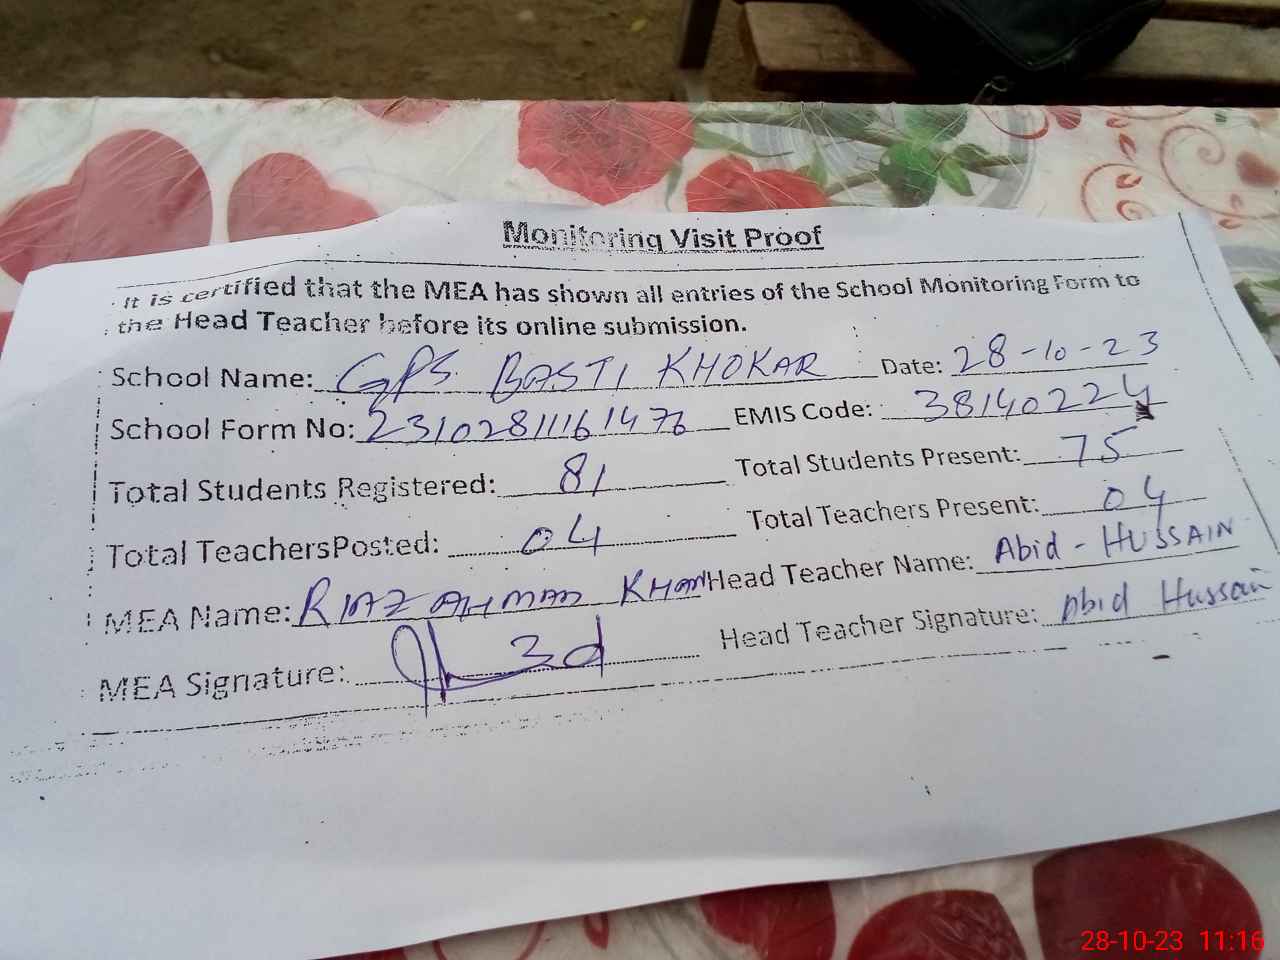 Monitoring Visit Proof
It is certified that the MEA has shown all entries of the School Monitoring Form to
the Head Teacher before its online submission.
School Name: GPS. BASTI KHOKAR Date: 28-10-23
School Form No: 23102811161476 EMIS Code: 38140224
Total Students Registered: 81 Total Students Present: 75
Total TeachersPosted: 04 Total Teachers Present: 04
MEA Name: RIAZ AHMAD KHAN Head Teacher Name: Abid - HUSSAIN
MEA Signature: Head Teacher Signature: Abid Hussain
28-10-23 11:16